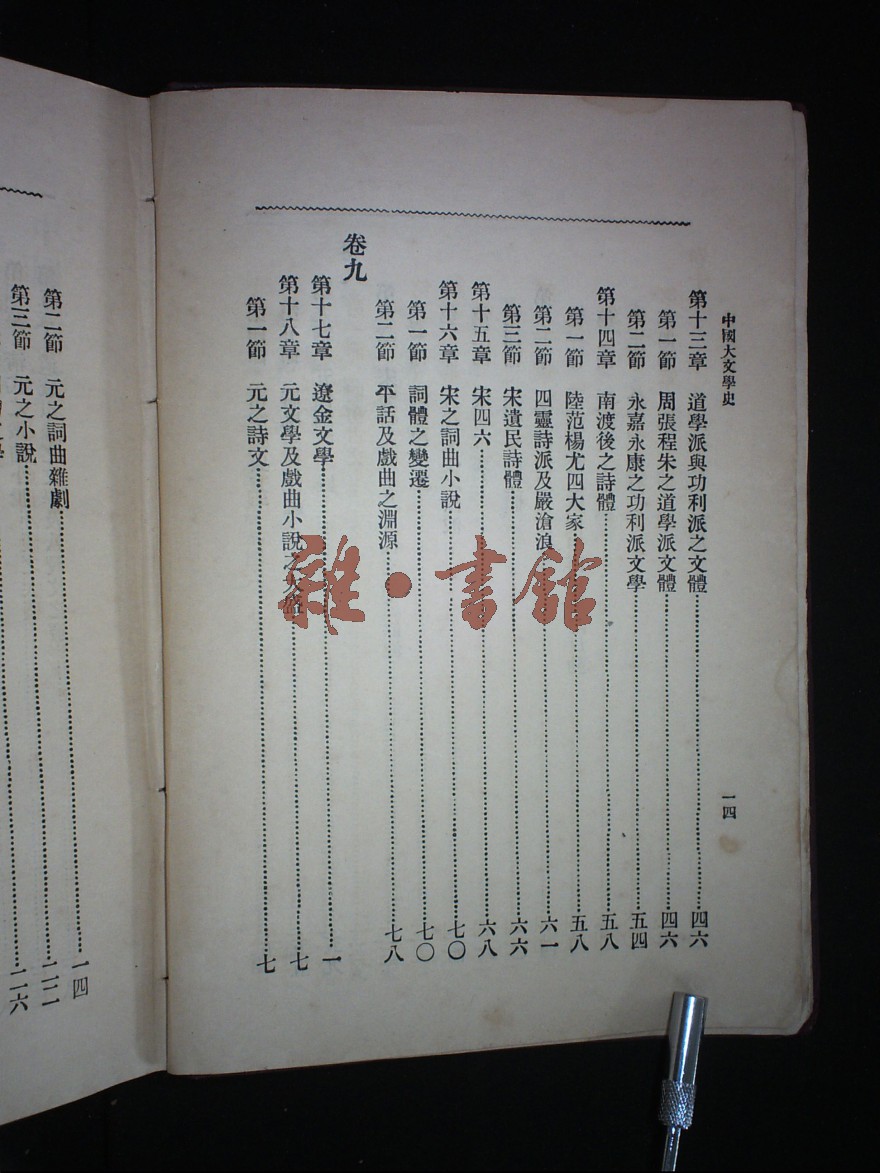 中國大文學史
一四
第十三章 道學派與功利派之文體……四六
第一節 周張程朱之道學派文體……四六
第二節 永嘉永康之功利派文學……五四
第十四章 南渡後之詩體……五八
第一節 陸范楊尤四大家……五八
第二節 四靈詩派及嚴滄浪……六一
第三節 宋遺民詩體……六六
第十五章 宋四六……六八
第十六章 宋之詞曲小說……七〇
第一節 詞體之變遷……七〇
第二節 平話及戲曲之淵源……七八
卷九
第十七章 遼金文學……一
第十八章 元文學及戲曲小說之大盛……七
第一節 元之詩文……七
第二節 元之詞曲雜劇……一四
第三節 元之小說……二二
二六
雜·書館